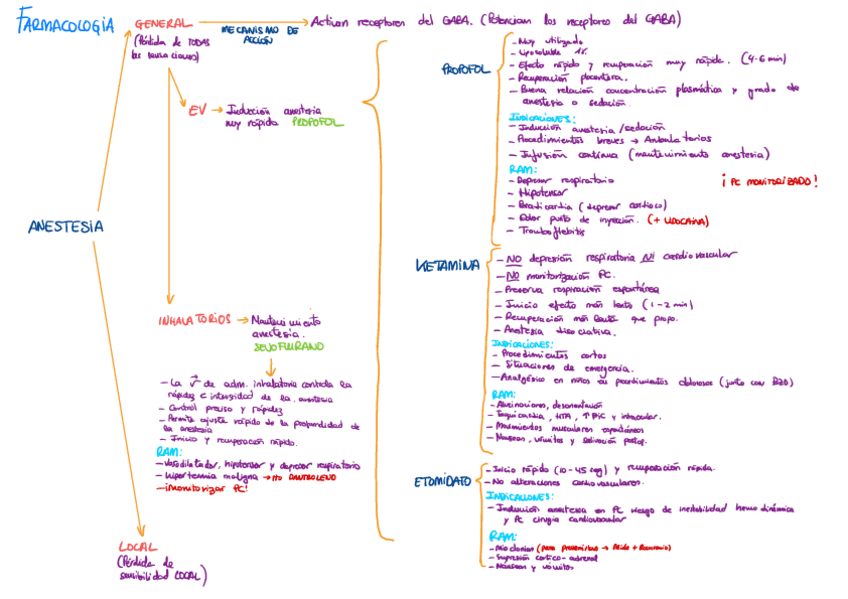 FARMACOLOGÍA
GENERAL
(Pérdida de TODAS
las sensaciones)
MECANISMO DE
ACCIÓN
Activan receptores del GABA. (Potencian los receptores del GABA)
EV → Inducción anestesia
muy rápida PROPOFOL
ANESTESIA
INHALATORIOS → Mantenimiento
anestesia.
SEVOFLURANO
- La v de adm. inhalatoria controla la
rapidez e intensidad de la anestesia
- Control preciso y rápidez
- Permite ajuste rápido de la profundidad de
la anestesia
- Inicio y recuperación rápido.
RAM:
- Vasodilatador, hipotensor y depresor respiratorio
- Hipertermia maligna → tto DANTROLENO
- ¡Monitorizar PC!
LOCAL
(Pérdida de
sensibilidad LOCAL)
PROPOFOL
- Muy utilizado
- Liposoluble
- Efecto rápido y recuperación muy rápida. (4-6 min)
- Recuperación placentera.
- Buena relación concentración plasmática y grado de
anestesia o sedación.
INDICACIONES:
- Inducción anestesia/sedación
- Procedimientos breves → Ambulatorios
- Infusión continua (mantenimiento anestesia)
RAM:
- Depresor respiratorio
¡PC MONITORIZADO!
- Hipotensor
- Bradicardia (depresor cardíaco)
- Dolor punto de inyección. (+ LIDOCAÍNA)
- Tromboflebitis
KETAMINA
- NO depresión respiratoria NI cardiovascular
- NO monitorización PC.
- Preserva respiración espontánea
- Inicio efecto más lento (1-2 min)
- Recuperación más lenta que propo.
- Anestesia disociativa.
INDICACIONES:
- Procedimientos cortos
- Situaciones de emergencia.
- Analgésico en niños en procedimientos dolorosos (junto con BZD)
RAM:
- Alucinaciones, desorientación
- Taquicardia, HTA, ↑PIC y intraocular.
- Movimientos musculares espontáneos
- Náuseas, vómitos y salivación postop.
ETOMIDATO
- Inicio rápido (10-45 seg) y recuperación rápida.
- No alteraciones cardiovasculares.
INDICACIONES:
- Inducción anestesia en PC riesgo de inestabilidad hemodinámica
y PC cirugía cardiovascular
RAM:
- Mioclonías (para prevenirlas →
- Supresión cortico-adrenal
- Náuseas y vómitos